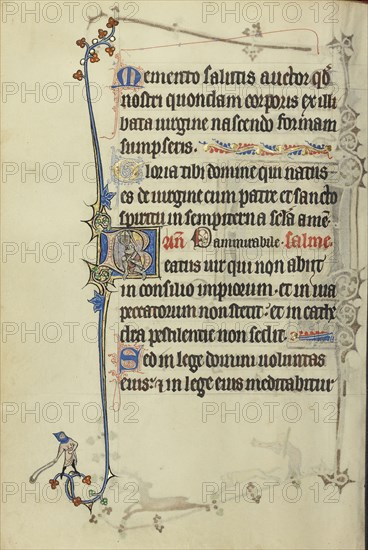 Memento salutis auctor qd
nostri quondam corporis ex illi
bata uirgine nascendo formam
sumpseris.
Gloria tibi domine qui natus
es de uirgine cum patre et sancto
spiritu in sempiterna secla ame
an Dammirabile. salme
Beatus uir qui non abiit
in consilio impiorum. et in uia
peccatorum non stetit. et in cathe
dra pestilentie non sedit.
Sed in lege domini uoluntas
eius. et in lege eius meditabitur